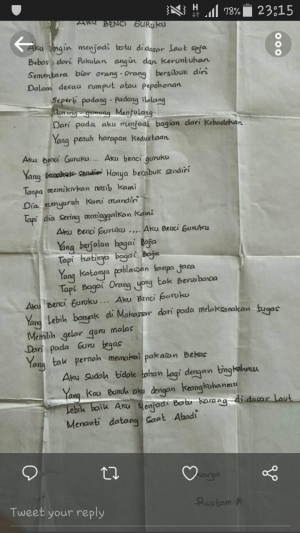 78% 23:15
AKU BENCI GURUKU
Aku ingin menjadi batu di dasar laut saja
Bebas dari Pukulan angin dan Keruntuhan
Sementara biar orang-orang bersibuk diri
Dalam desau rumput atau pepohonan
Seperti padang-padang ilalang
Gunung-gunung Menjulang
Dari pada aku menjadi bagian dari Kebodohan
Yang penuh harapan Kedustaan
Aku Benci Guruku... Aku benci guruku
Yang Hanya bersibuk sendiri
Tanpa memikirkan nasib Kami
Dia menyuruh Kami mandiri
Tapi dia Sering meninggalkan Kami
Aku Benci Guruku .... Aku Benci Guruku
Yang berjalan bagai Baja
Tapi hatinya bagai Baja
Yang Katanya pahlawan tanpa jasa
Tapi Bagai Orang yang tak Bernibawa
Aku Benci Guruku... Aku Benci Guruku
Yang Lebih banyak di Makassar dari pada melaksanakan tugas
Memilih gelar guru malas
Dari pada Guru tegas
Yang tak pernah memakai pakaian Bekas
Aku Sudah tidak tahan lagi dengan tingkahmu
Yang Kau Bunuh aku dengan keangkuhanmu
Lebih baik Aku Menjadi Batu Karang di dasar Laut
Menanti datang Saat Abadi
Rustam. A
Tweet your reply